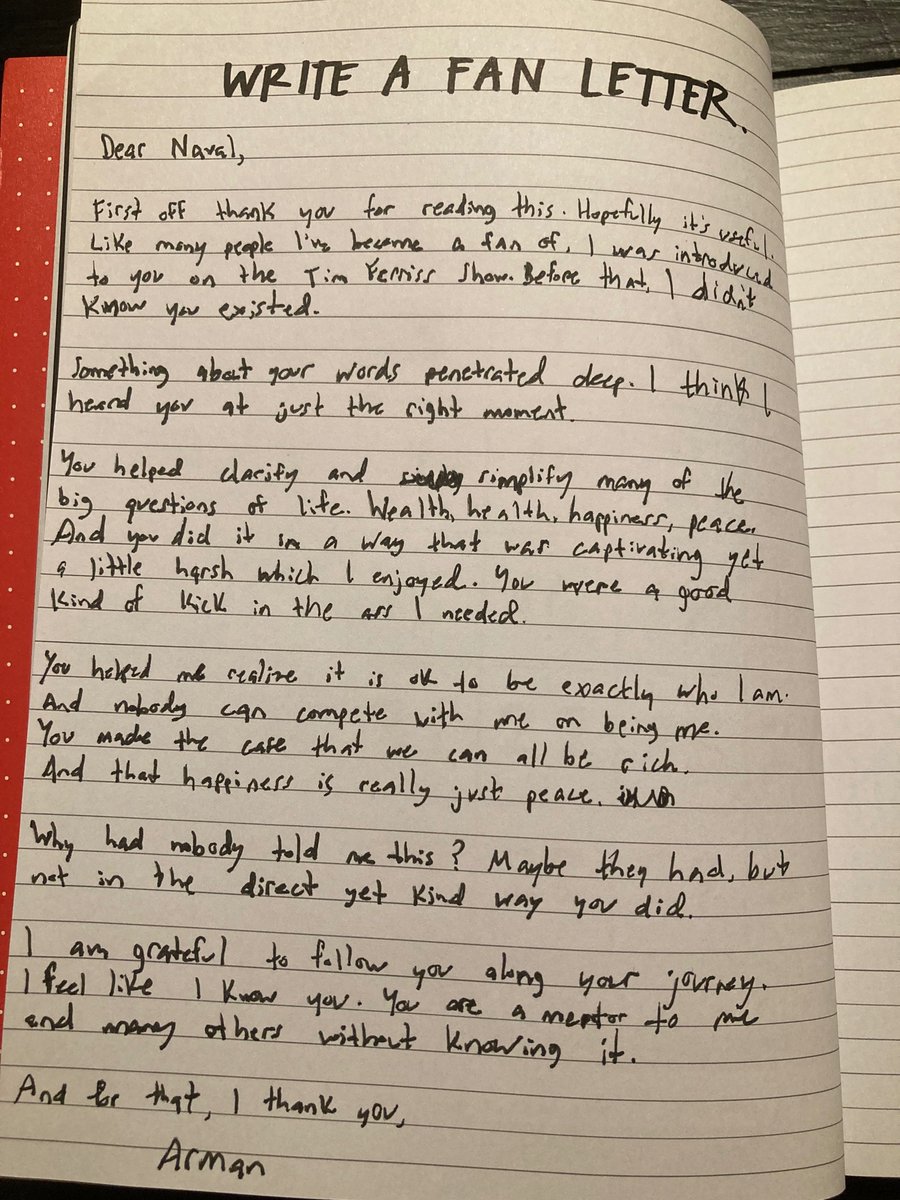 WRITE A FAN LETTER.
Dear Naval,
First off thank you for reading this. Hopefully it's useful.
Like many people I've become a fan of, I was introduced
to you on the Tim Ferriss Show. Before that, I didn't
know you existed.
Something about your words penetrated deep. I think I
heard you at just the right moment.
You helped clarify and simplify many of the
big questions of life. Wealth, health, happiness, peace.
And you did it in a way that was captivating yet
a little harsh which I enjoyed. You were a good
kind of kick in the ass I needed.
You helped me realize it is ok to be exactly who I am.
And nobody can compete with me on being me.
You made the case that we can all be rich.
And that happiness is really just peace.
Why had nobody told me this? Maybe they had, but
not in the direct yet kind way you did.
I am grateful to follow you along your journey.
I feel like I know you. You are a mentor to me
and many others without knowing it.
And for that, I thank you,
Arman